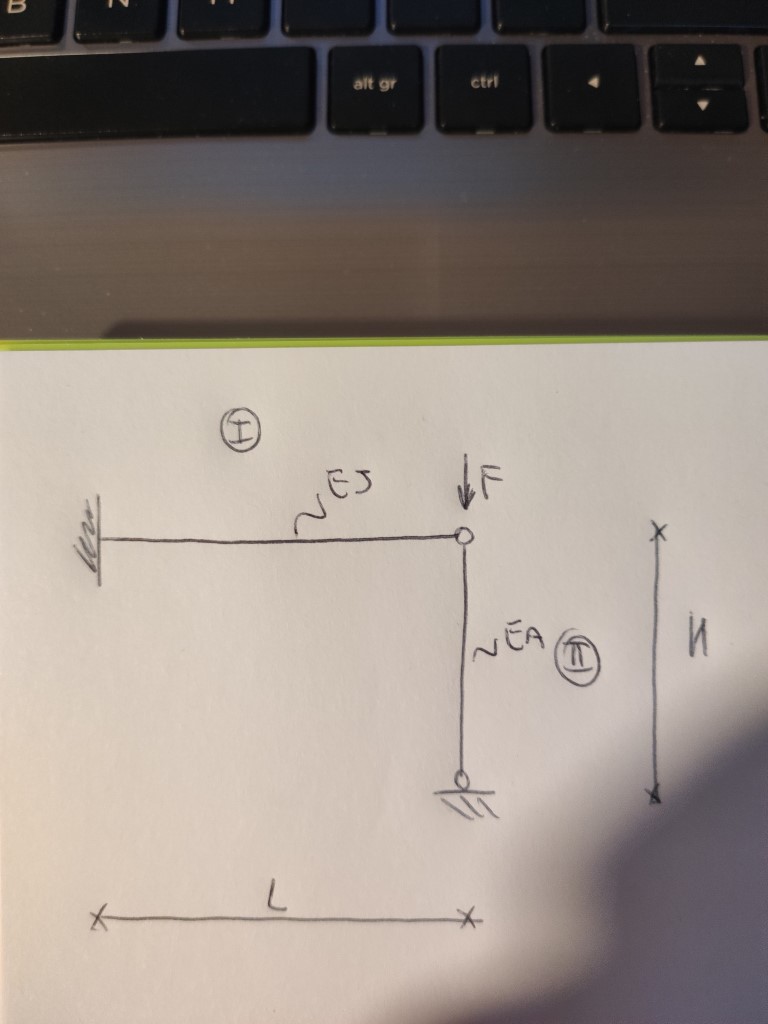 alt gr
ctrl
I
EJ
F
EA
II
H
L